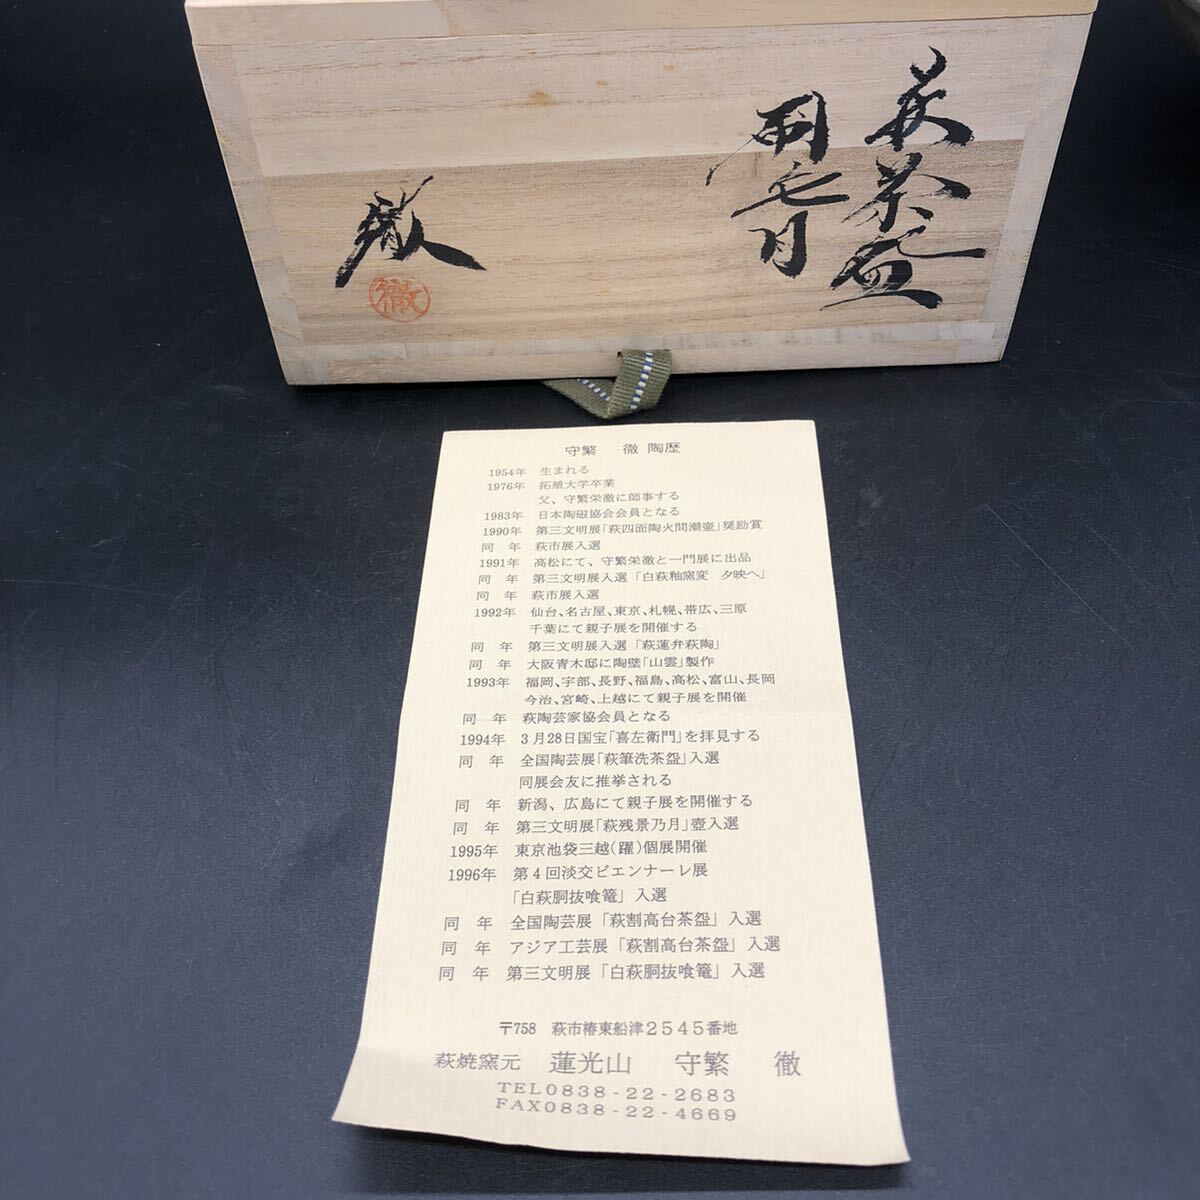 萩茶盌
雨七月
徹
徹
守繁 徹 陶歴
1954年 生まれる
1976年 拓殖大学卒業
父、守繁栄徹に師事する
1983年 日本陶磁協会会員となる
1990年 第三文明展「萩四面陶火間潮壷」奨励賞
同 年 萩市展入選
1991年 高松にて、守繁栄徹と一門展に出品
同 年 第三文明展入選「白萩釉窯変 夕映へ」
同 年 萩市展入選
1992年 仙台、名古屋、東京、札幌、帯広、三原
千葉にて親子展を開催する
同 年 第三文明展入選「萩蓮弁萩陶」
同 年 大阪青木邸に陶壁「山雲」製作
1993年 福岡、宇部、長野、福島、高松、富山、長岡
今治、宮崎、上越にて親子展を開催
同 年 萩陶芸家協会員となる
1994年 3月28日国宝「喜左衛門」を拝見する
同 年 全国陶芸展「萩筆洗茶盌」入選
同展会友に推挙される
同 年 新潟、広島にて親子展を開催する
同 年 第三文明展「萩残景乃月」壺入選
1995年 東京池袋三越(躍)個展開催
1996年 第4回淡交ビエンナーレ展
「白萩胴抜喰籠」入選
同 年 全国陶芸展「萩割高台茶盌」入選
同 年 アジア工芸展「萩割高台茶盌」入選
同 年 第三文明展「白萩胴抜喰籠」入選
〒758 萩市椿東船津2545番地
萩焼窯元 蓮光山 守繁 徹
TEL0838-22-2683
FAX0838-22-4669